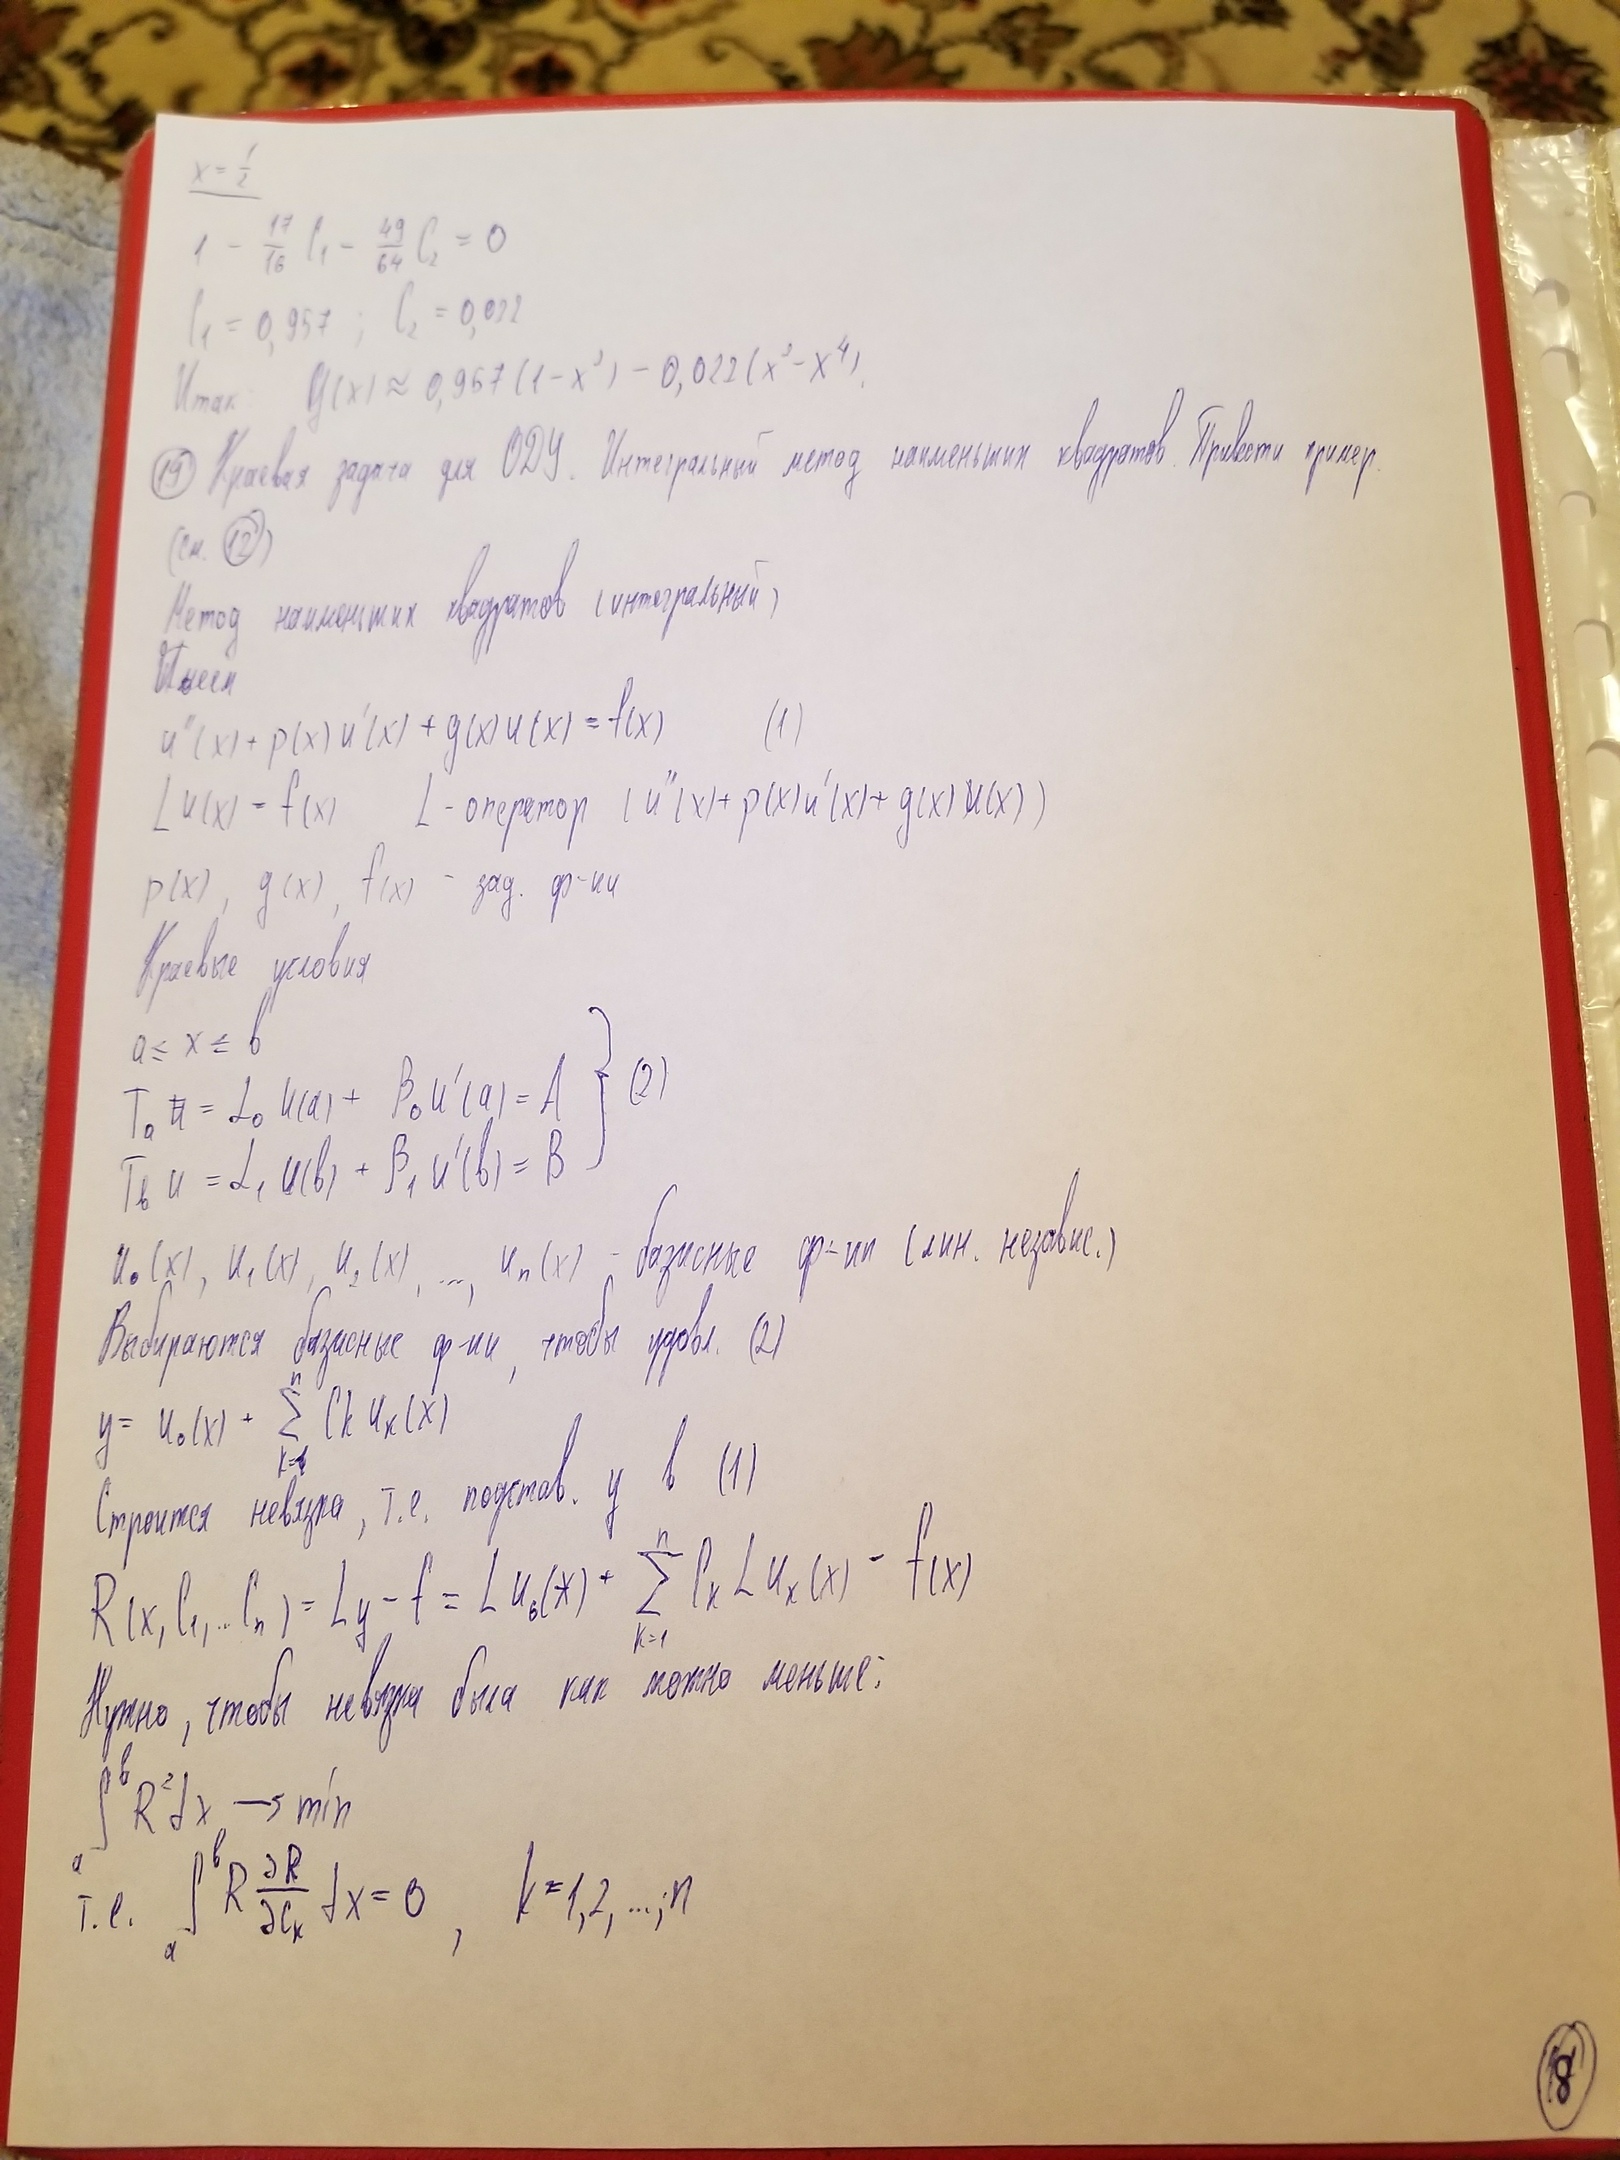 x = 1/2
1 - 17/16 C₁ - 49/64 C₂ = 0
C₁ = 0,957 ; C₂ = 0,022
Итак: y(x) ≈ 0,957(1-x²) - 0,022(x²-x⁴).
(19) Краевая задача для ОДУ. Интегральный метод наименьших квадратов. Привести пример.
(см. (12))
Метод наименьших квадратов (интегральный)
Имеем
u''(x) + p(x)u'(x) + g(x)u(x) = f(x) (1)
Lu(x) = f(x) L - оператор (u''(x) + p(x)u'(x) + g(x)u(x))
p(x), g(x), f(x) - зад. ф-ии
Краевые условия
a ≤ x ≤ b
Tₐ u = α₀ u(a) + β₀ u'(a) = A
} (2)
T_b u = α₁ u(b) + β₁ u'(b) = B
u₀(x), u₁(x), u₂(x), ..., uₙ(x) - базисные ф-ии (лин. независ.)
Выбираются базисные ф-ии, чтобы удовл. (2)
y = u₀(x) + ∑ₖ₌₁ⁿ Cₖ uₖ(x)
Строится невязка, т.е. подстав. y в (1)
R(x, C₁, .. Cₙ) = Ly - f = Lu₀(x) + ∑ₖ₌₁ⁿ Cₖ L uₖ(x) - f(x)
Нужно, чтобы невязка была как можно меньше:
∫ₐᵇ R² dx → min
т.е. ∫ₐᵇ R ∂R/∂Cₖ dx = 0 , k = 1,2, ..., n